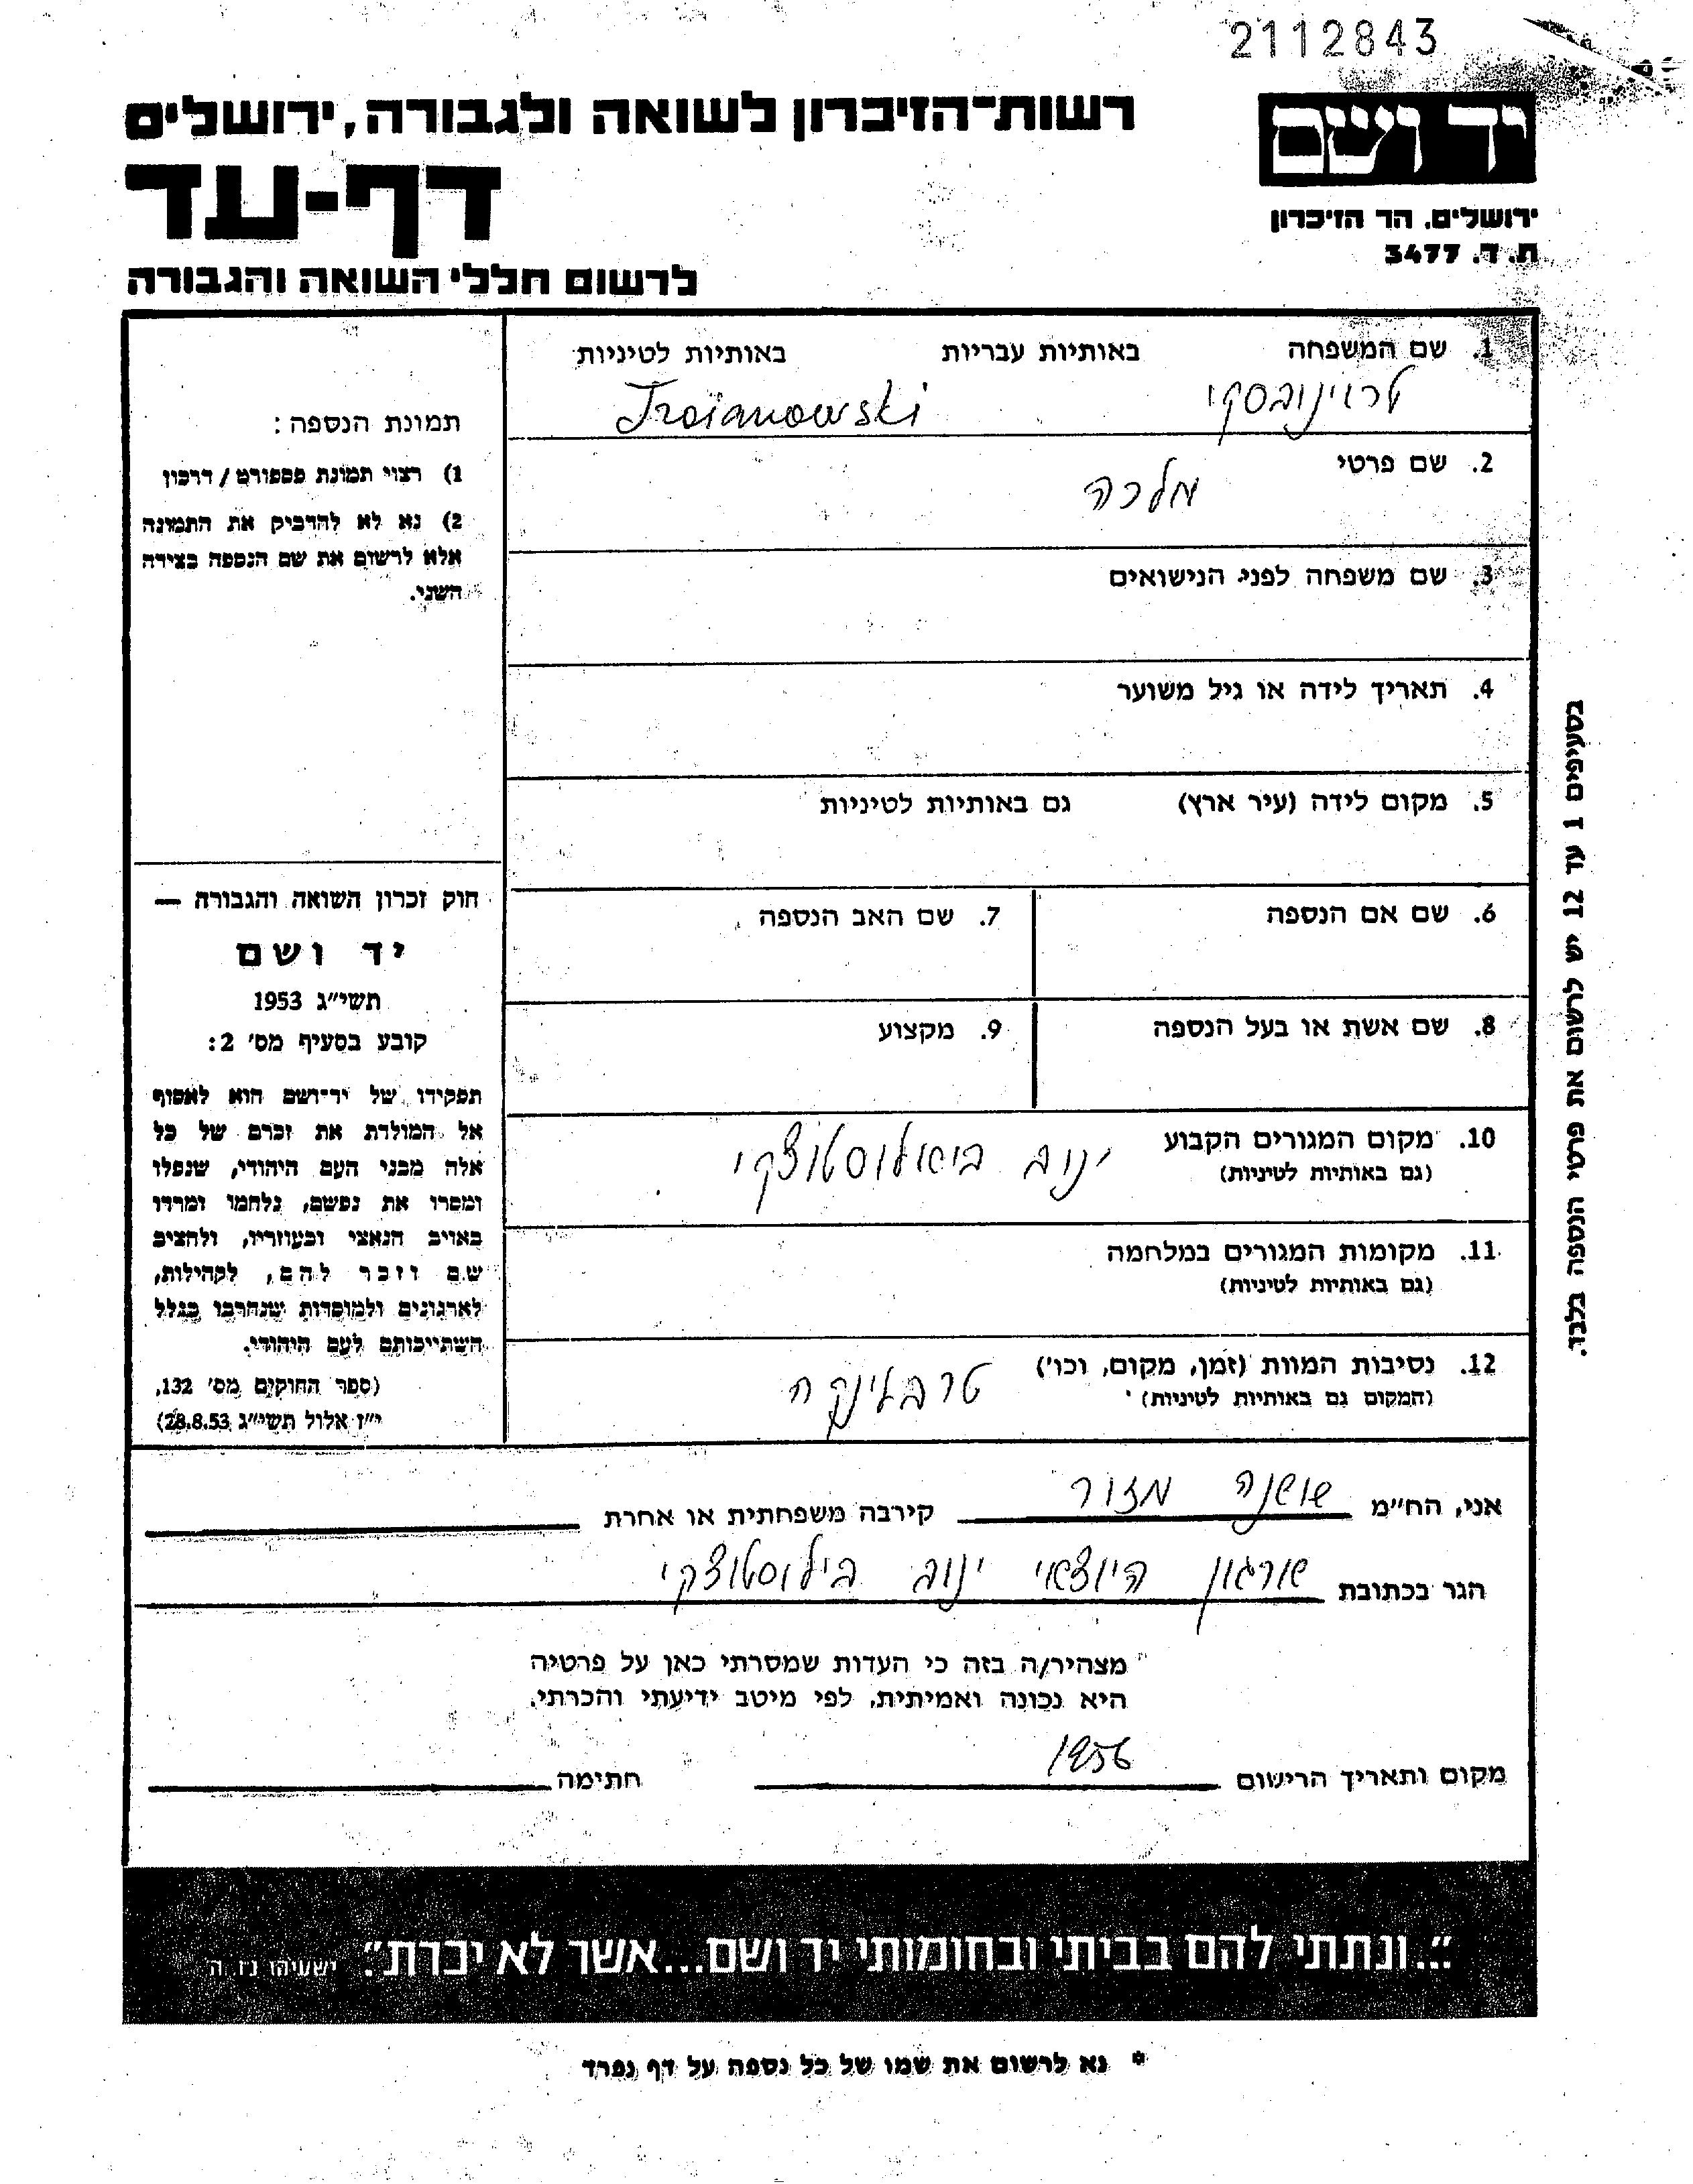 2112843
יד ושם
רשות־הזיכרון לשואה ולגבורה, ירושלים
דף-עד
ירושלים. הר הזיכרון
ת. ד. 3477
לרשום חללי השואה והגבורה
1. שם המשפחה באותיות עבריות באותיות לטיניות
טרוינובסקי Troianowski
2. שם פרטי
מלכה
3. שם משפחה לפני הנישואים
4. תאריך לידה או גיל משוער
5. מקום לידה (עיר ארץ) גם באותיות לטיניות
6. שם אם הנספה
7. שם האב הנספה
8. שם אשת או בעל הנספה
9. מקצוע
10. מקום המגורים הקבוע
(גם באותיות לטיניות)
ינוב ביאלוסטוצקי
11. מקומות המגורים במלחמה
(גם באותיות לטיניות)
12. נסיבות המוות (זמן, מקום, וכו')
(המקום גם באותיות לטיניות)
טרבלינקה
תמונת הנספה:
1) רצוי תמונת פספורט / דרכון
2) נא לא להדביק את התמונה
אלא לרשום את שם הנספה בצידה
השני.
חוק זכרון השואה והגבורה —
יד ושם
תשי"ג 1953
קובע בסעיף מס' 2:
תפקידו של יד־ושם הוא לאסוף
אל המולדת את זכרם של כל
אלה מבני העם היהודי, שנפלו
ומסרו את נפשם, נלחמו ומרדו
באויב הנאצי ובעוזריו, ולהציב
שם וזכר להם, לקהילות,
לארגונים ולמוסדות שנחרבו בגלל
השתייכותם לעם היהודי.
(ספר החוקים מס' 132,
י"ז אלול תשי"ג 28.8.53)
בסעיפים 1 עד 12 יש לרשום את פרטי הנספה בלבד.
אני, הח"מ שושנה מזור קירבה משפחתית או אחרת
הגר בכתובת שורגון היוצאי ינוב בילוסטוצקי
מצהיר/ה בזה כי העדות שמסרתי כאן על פרטיה
היא נכונה ואמיתית, לפי מיטב ידיעתי והכרתי.
מקום ותאריך הרישום 1956 חתימה
"...ונתתי להם בביתי ובחומותי יד ושם...אשר לא יכרת". ישעיהו נ"ו ה
* נא לרשום את שמו של כל נספה על דף נפרד